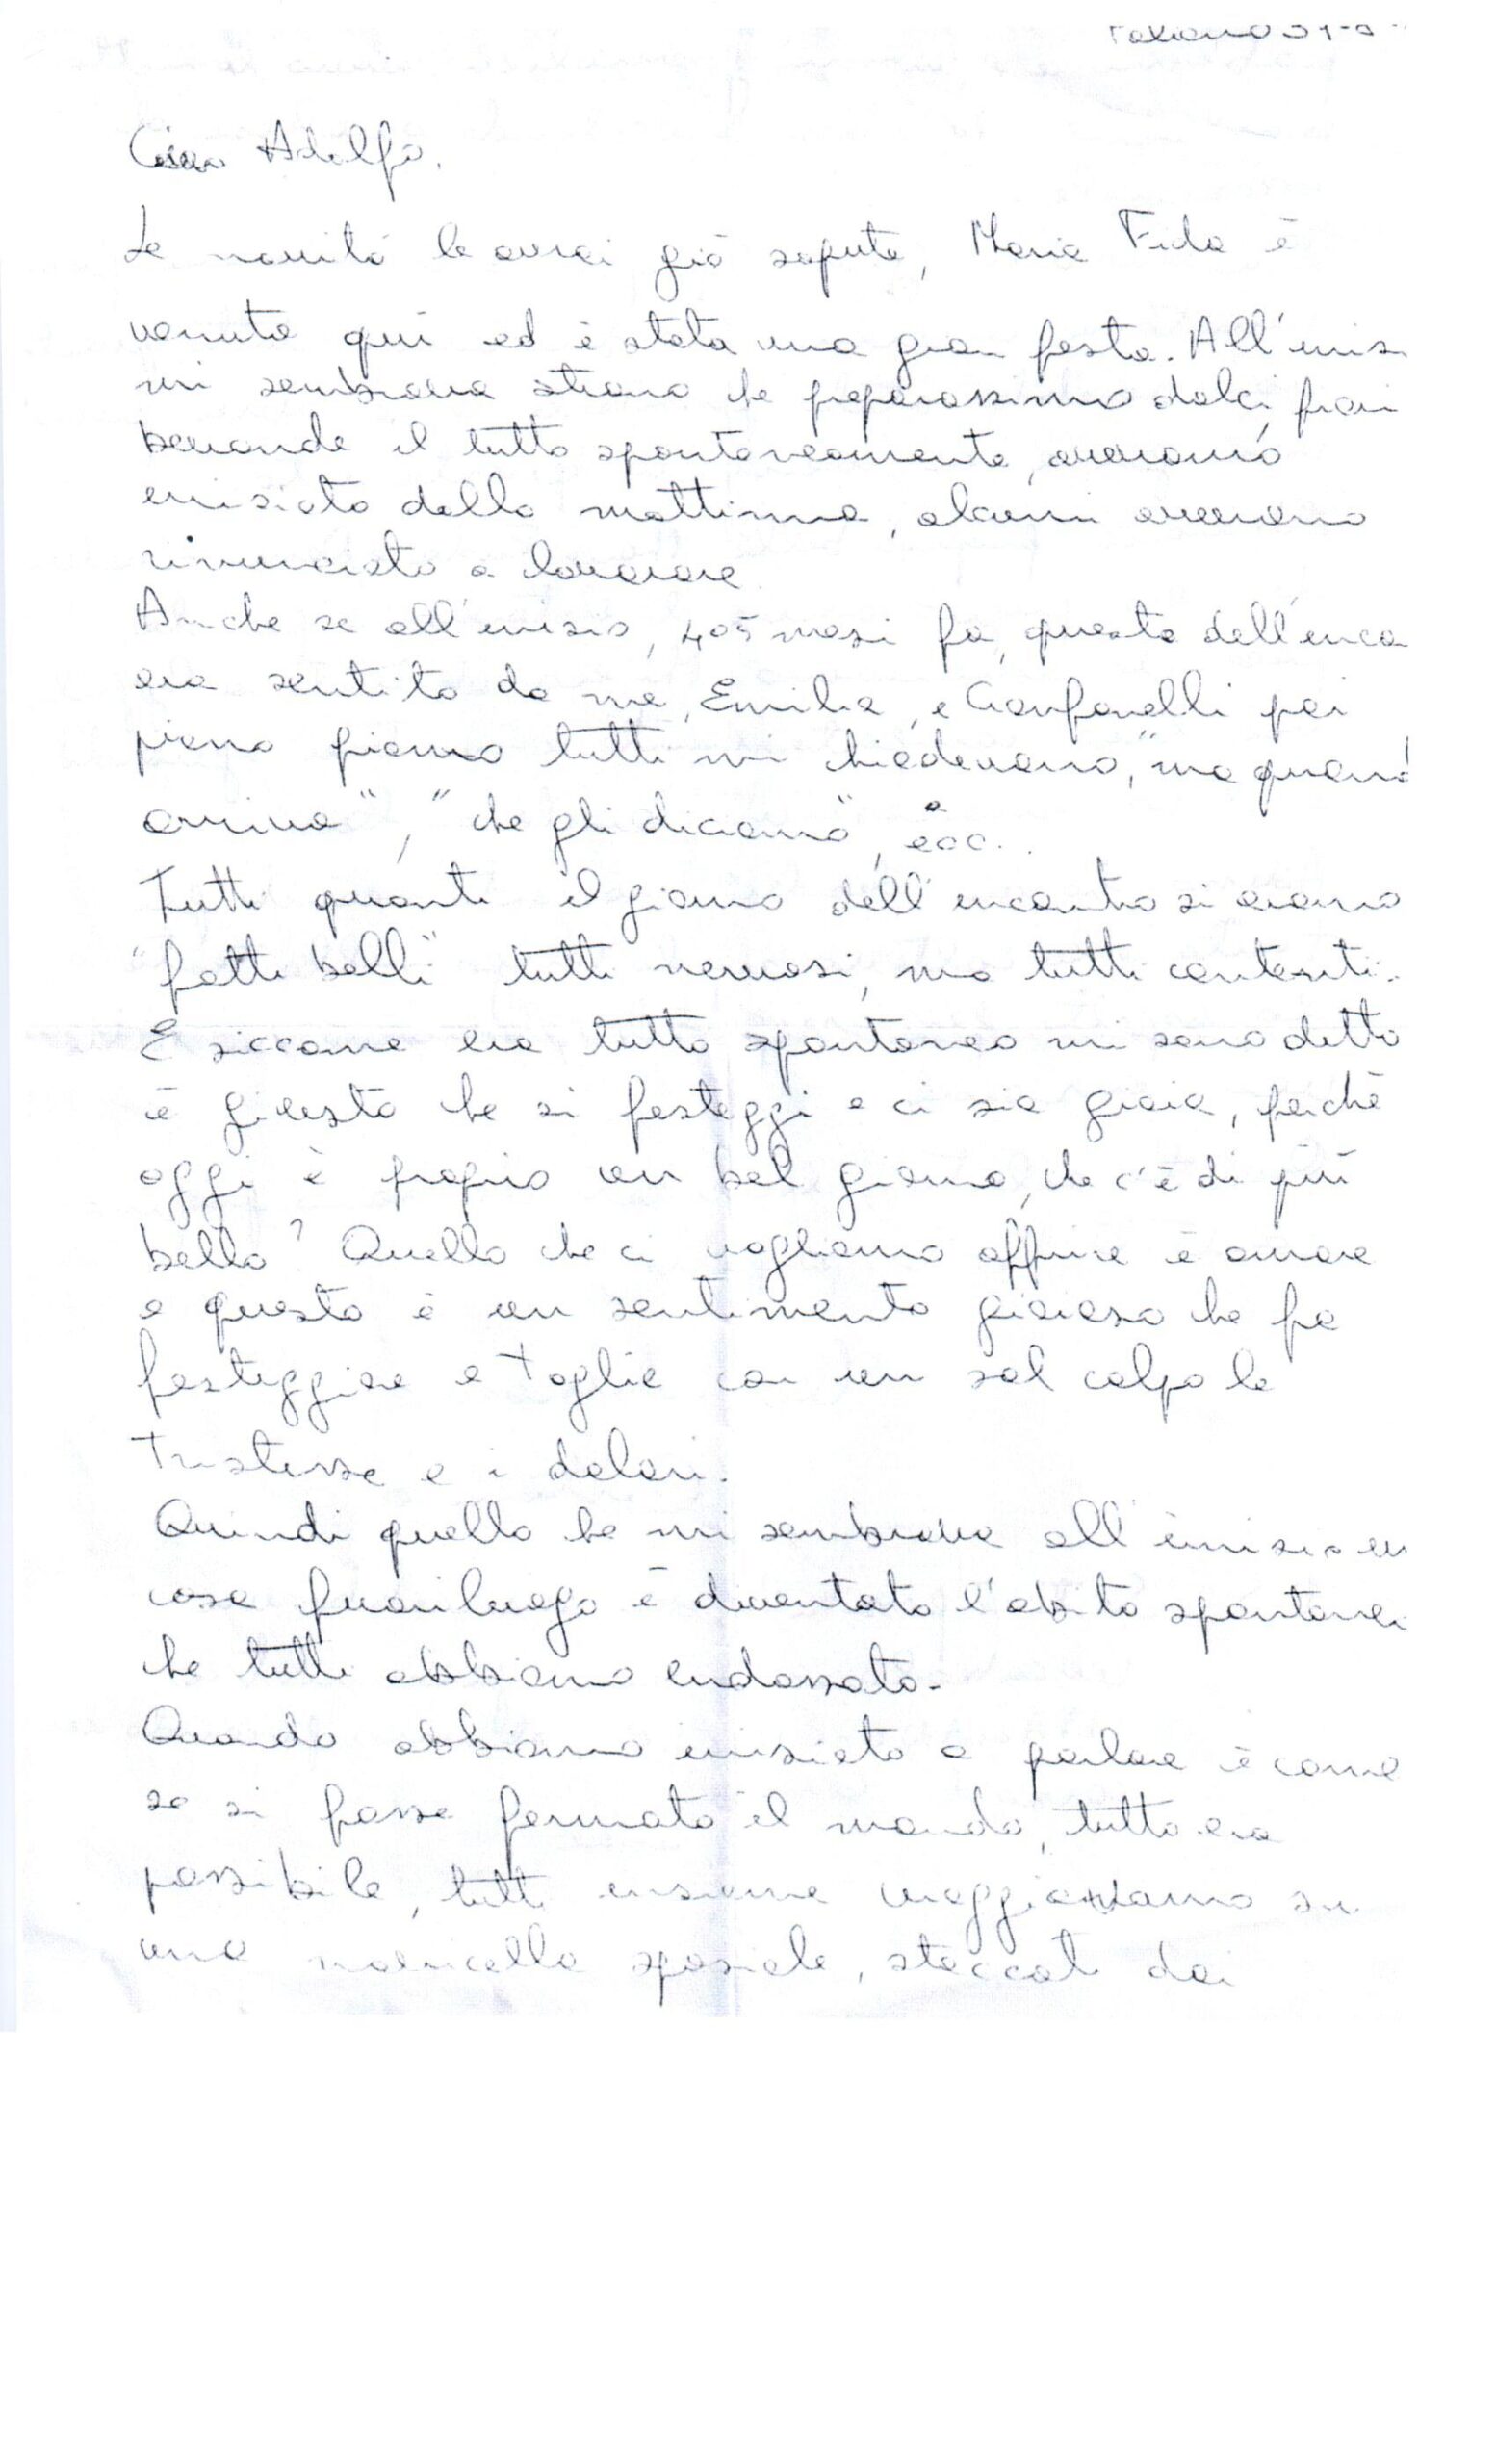 Caro Adolfo.
Le novità le avrai già sapute, Maria Fida è
venuta quì ed è stata una gran festa. All'iniz
mi sembrava strano che preparassimo dolci, fiori
bevande il tutto spontaneamente, avevamo
iniziato dalla mattinna, alcuni avevano
rinunciato a lavorare.
Anche se all'inizio, 4 o 5 mesi fa, questo dell'inco
era sentito da me, Emilia, e Gianfanelli poi
piano piano tutti mi chiedevano, "ma quand
arriva", "che gli diciamo", ecc..
Tutti quanti il giorno dell'incontro si erano
"fatti belli" tutti nervosi, ma tutti contenti.
E siccome era tutto spontaneo mi sono detto
è giusto che si festeggi e ci sia gioia, perchè
oggi è proprio un bel giorno, che c'è di più
bello? Quello che ci vogliamo offrire è amore
e questo è un sentimento gioioso che fa
festeggiare e toglie con un sol colpo le
tristezze e i dolori.
Quindi quello che mi sembrava all'inizio un
cosa fuoriluogo è diventato l'abito spontaneo
che tutti abbiamo indossato.
Quando abbiamo iniziato a parlare è come
se si fosse fermato il mondo, tutto era
possibile, tutti insieme viaggiavamo su
una navicella spaziale, staccati dai